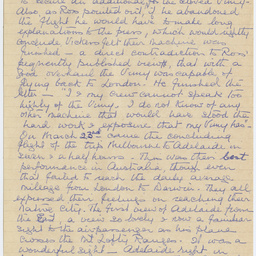 to secure an additional to the loved Vimy.
Also as Ross pointed out, if he abandoned
the flight he would have to make long
explanations to the press, which would rightly
conclude Vickers felt their machine worn
- a direct contradiction to Ross'
frequently published views, that with a
good overhaul the Vimy was capable of
flying back to London. He finished the
letter - "I cannot speak too
highly of the Vimy. I do not know of any
other machine that would have stood the
hard work & exposure that my Vimy has."
On March 23rd came the concluding
flight of the trip Melbourne to Adelaide in
seven & a half hours - This was their best
performance in Australia, though even
that failed to reach the daily average
mileage from London to Darwin. They all
expressed their feelings on reaching their
native city. The first view of Adelaide from
the East, a view so lovely & now a familiar
sight to the air passenger as his plane
crosses the Mt Lofty Ranges. It was a
wonderful sight - Adelaide right in